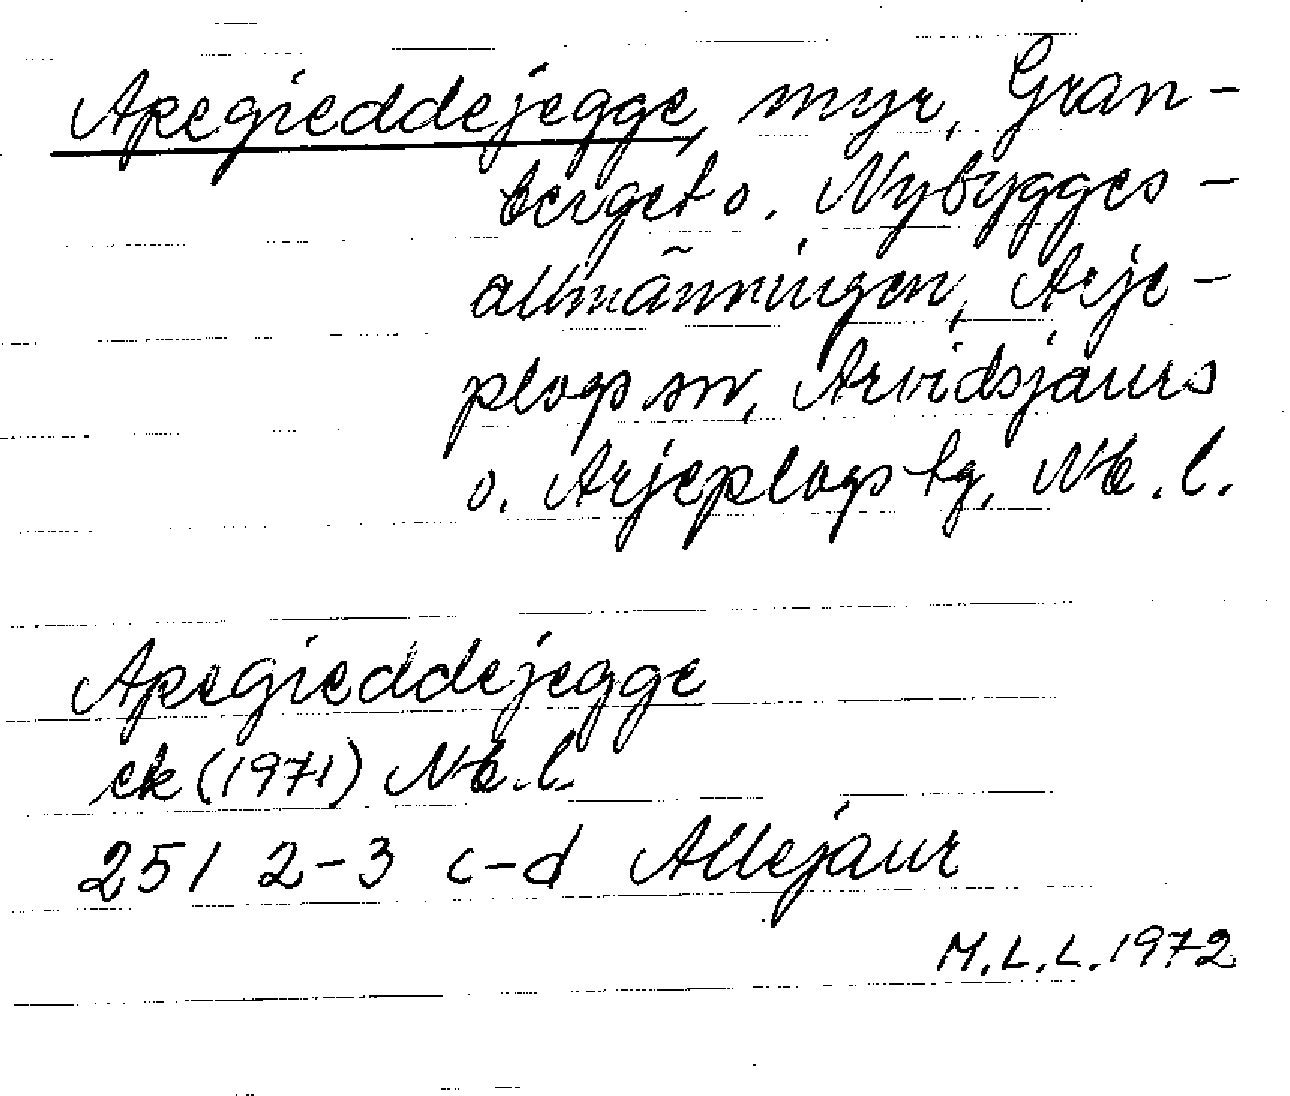 Apegieddejegge, myr, Gran-
berget o. Nybygges-
allmänningen, Arje-
plogs sn, Arvidsjaurs
o. Arjeplogs tg, Nb. l.
Apegieddejegge
ek (1971) Nb. l.
251 2-3 c-d Allejaur
M.L.L. 1972